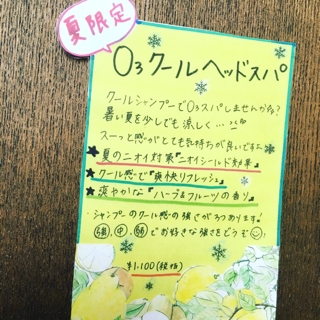 夏限定
O3クールヘッドスパ
クールシャンプーでO3スパしませんか?
暑い夏を少しでも涼しく…
スーッと感がとても気持ちが良いです
★夏のニオイ対策『ニオイシールド効果』
★クール感で『爽快リフレッシュ』
★爽やかな『ハーブ&フルーツの香り』
シャンプーのクール感の強さが3つあります!
強,中,弱でお好きな強さをどうぞ
¥1,100(税抜)